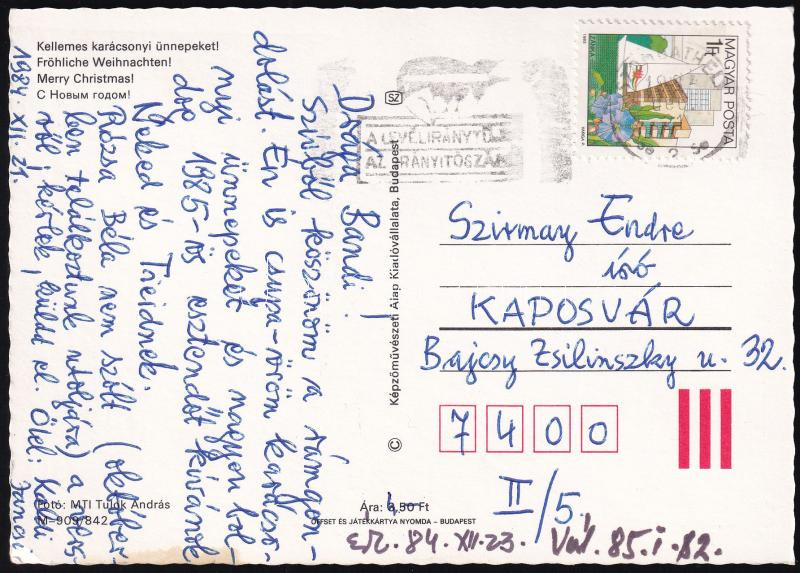 Kellemes karácsonyi ünnepeket!
Fröhliche Weihnachten!
Merry Christmas!
С Новым годом!
Drága Bandi!
Szívből köszönöm a rámgon-
dolást. Én is csupa-öröm karácso-
nyi ünnepeket és nagyon bol-
dog 1985-ös esztendőt kívánok
Neked és Tieidnek.
Rózsa Béla nem szólt (október-
ben találkoztunk utoljára) a vers-
ről, kérlek, küldd el. Ölel:
János
1984. XII. 21.
Fotó: MTI Tulok András
M-909/842
SZ
Képzőművészeti Alap Kiadóvállalata, Budapest
©
Ára: 3,50 Ft
OFFSET ÉS JÁTÉKKÁRTYA NYOMDA – BUDAPEST
A LEVÉLIRÁNYÍTÓ
AZ IRÁNYÍTÓSZÁM
1Ft
MAGYAR POSTA
ZÁNKA
Szirmay Endre
író
KAPOSVÁR
Bajcsy Zsilinszky u. 32.
7400
II/5,
érk. 84. XII. 23. Vál. 85. I. 82.